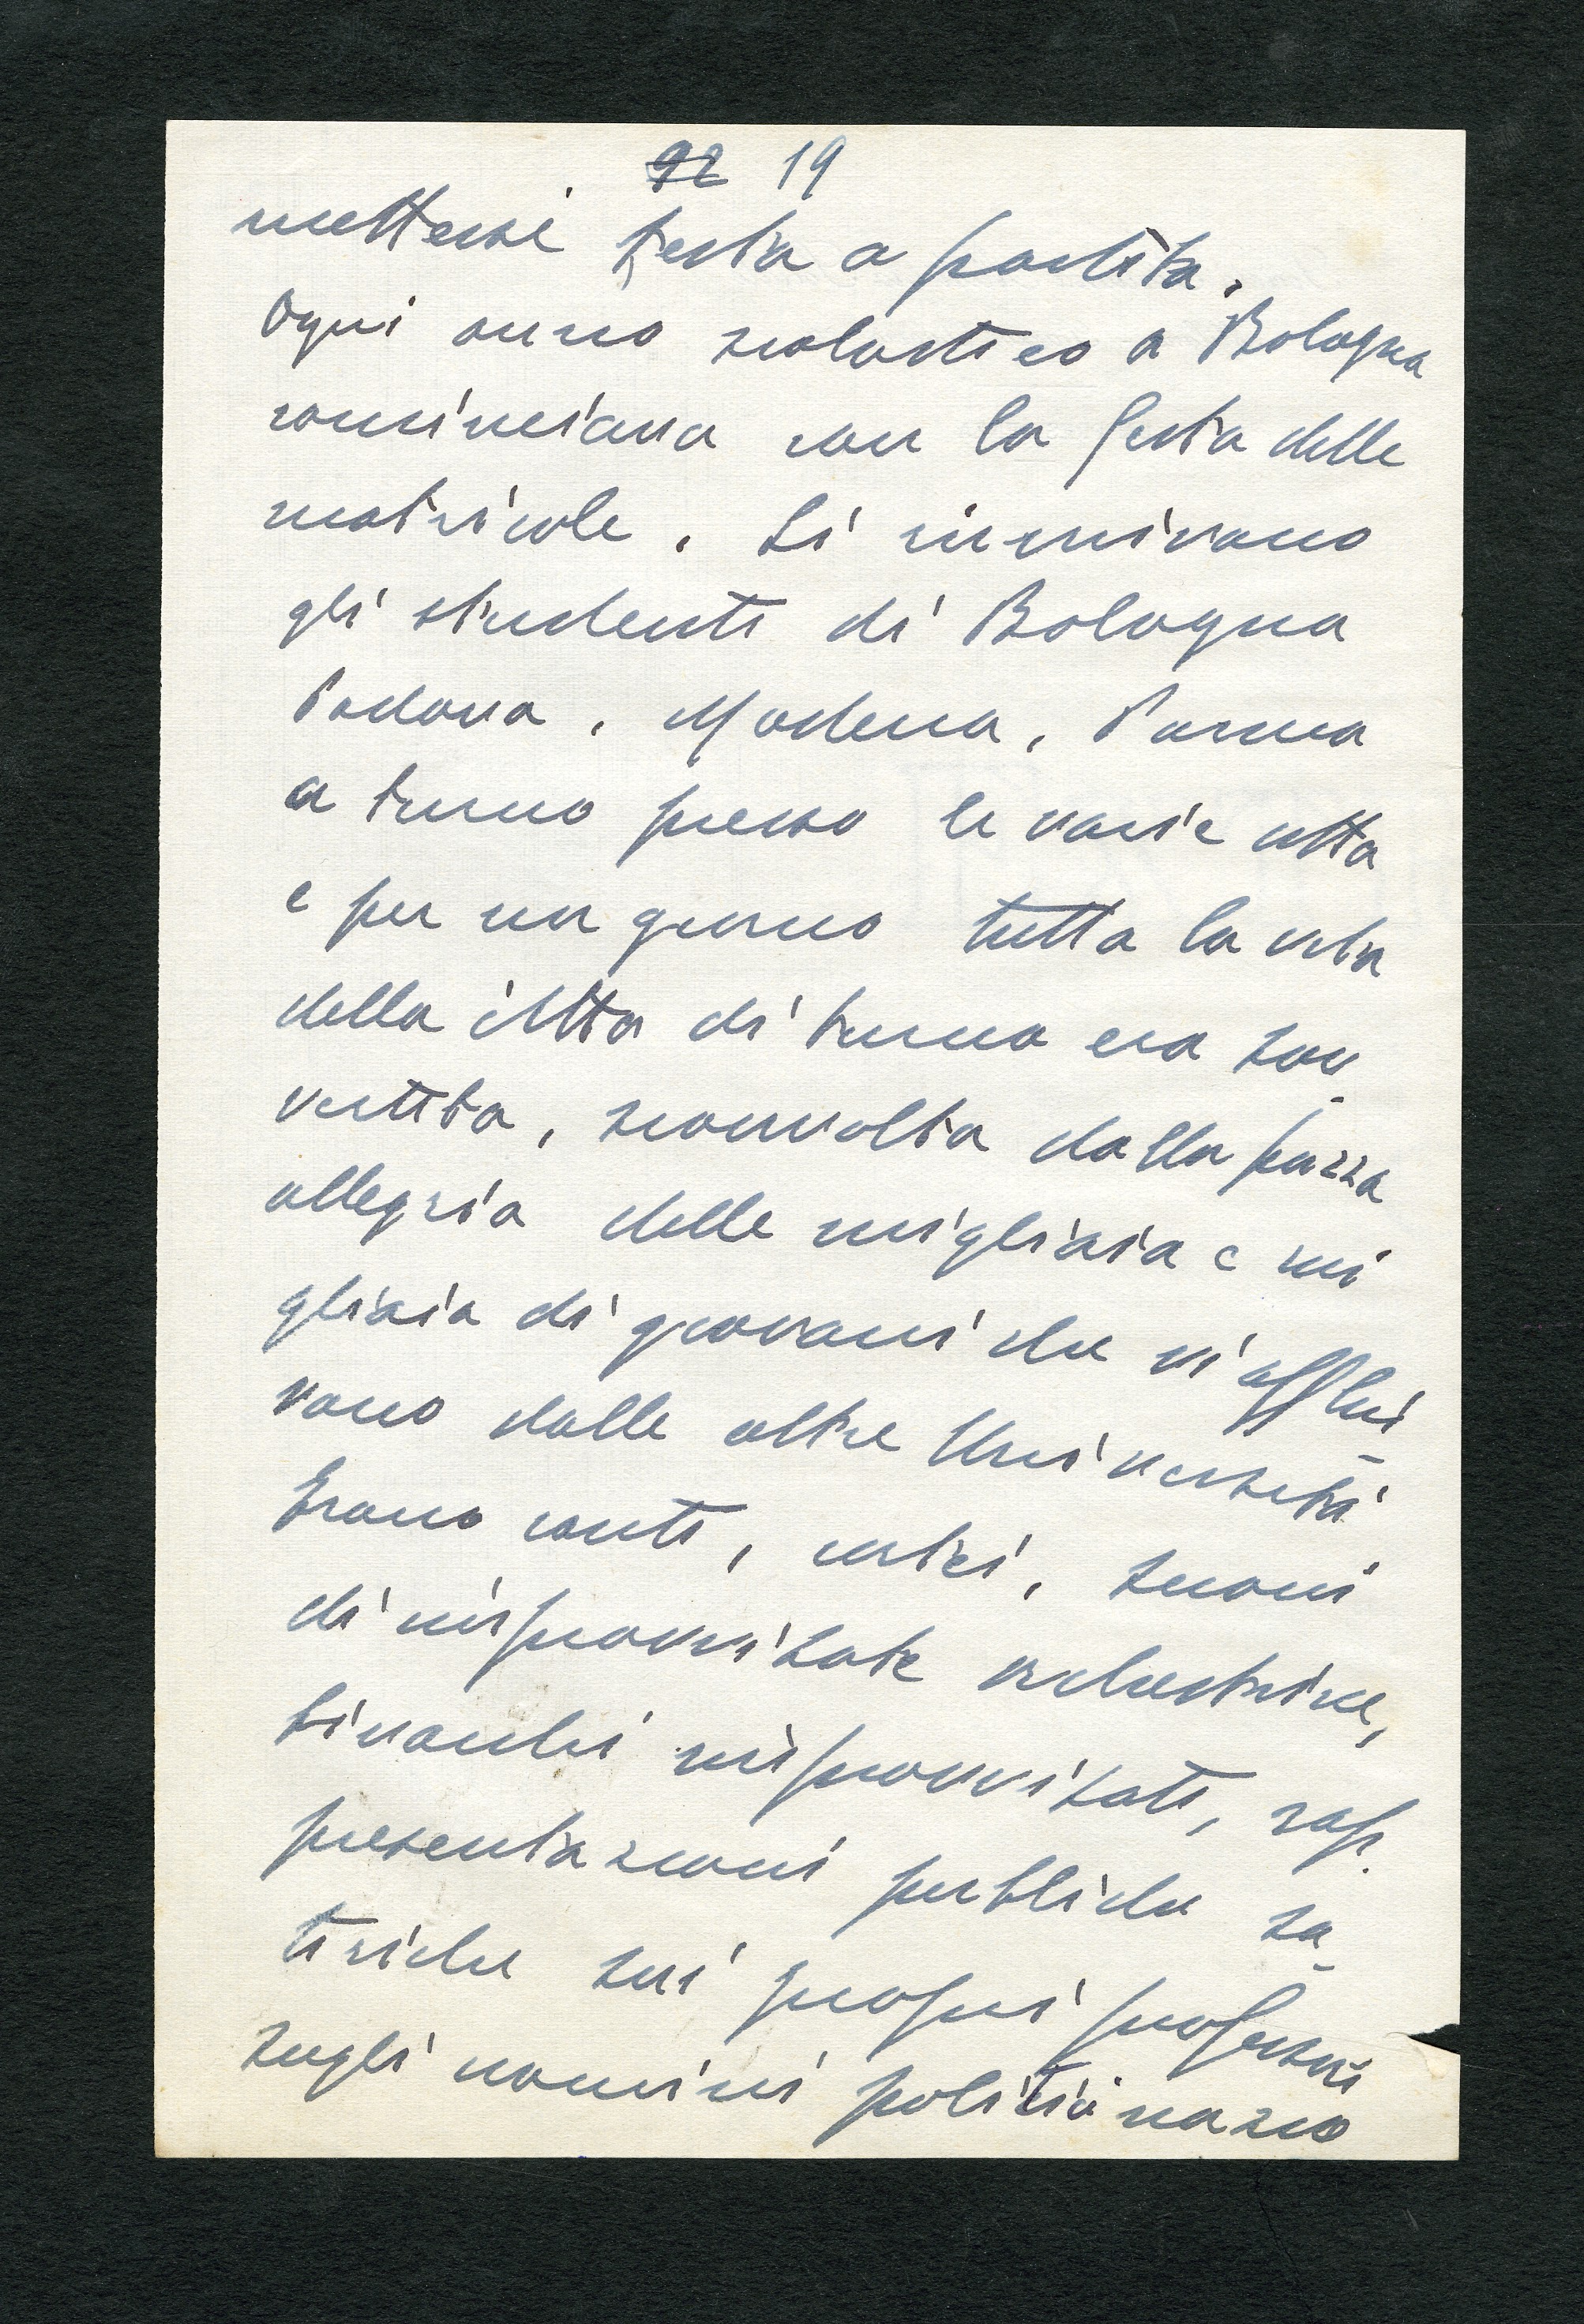 92 19
mettersi testa a partita.
Ogni anno scolastico a Bologna
cominciava con la festa delle
matricole. Si riunivano
gli studenti di Bologna
Padova, Modena, Parma
a turno presso le varie città
e per un giorno tutta la vita
della città di turno era sov-
vertita, sconvolta dalla pazza
allegria delle migliaia e mi
gliaia di giovani che vi afflui-
vano dalle altre Università
Erano canti, cortei, suoni
di improvvisate orchestrine,
bivacchi improvvisati, rap-
presentazioni pubbliche sa-
tiriche sui propri professori
sugli uomini politici nazio